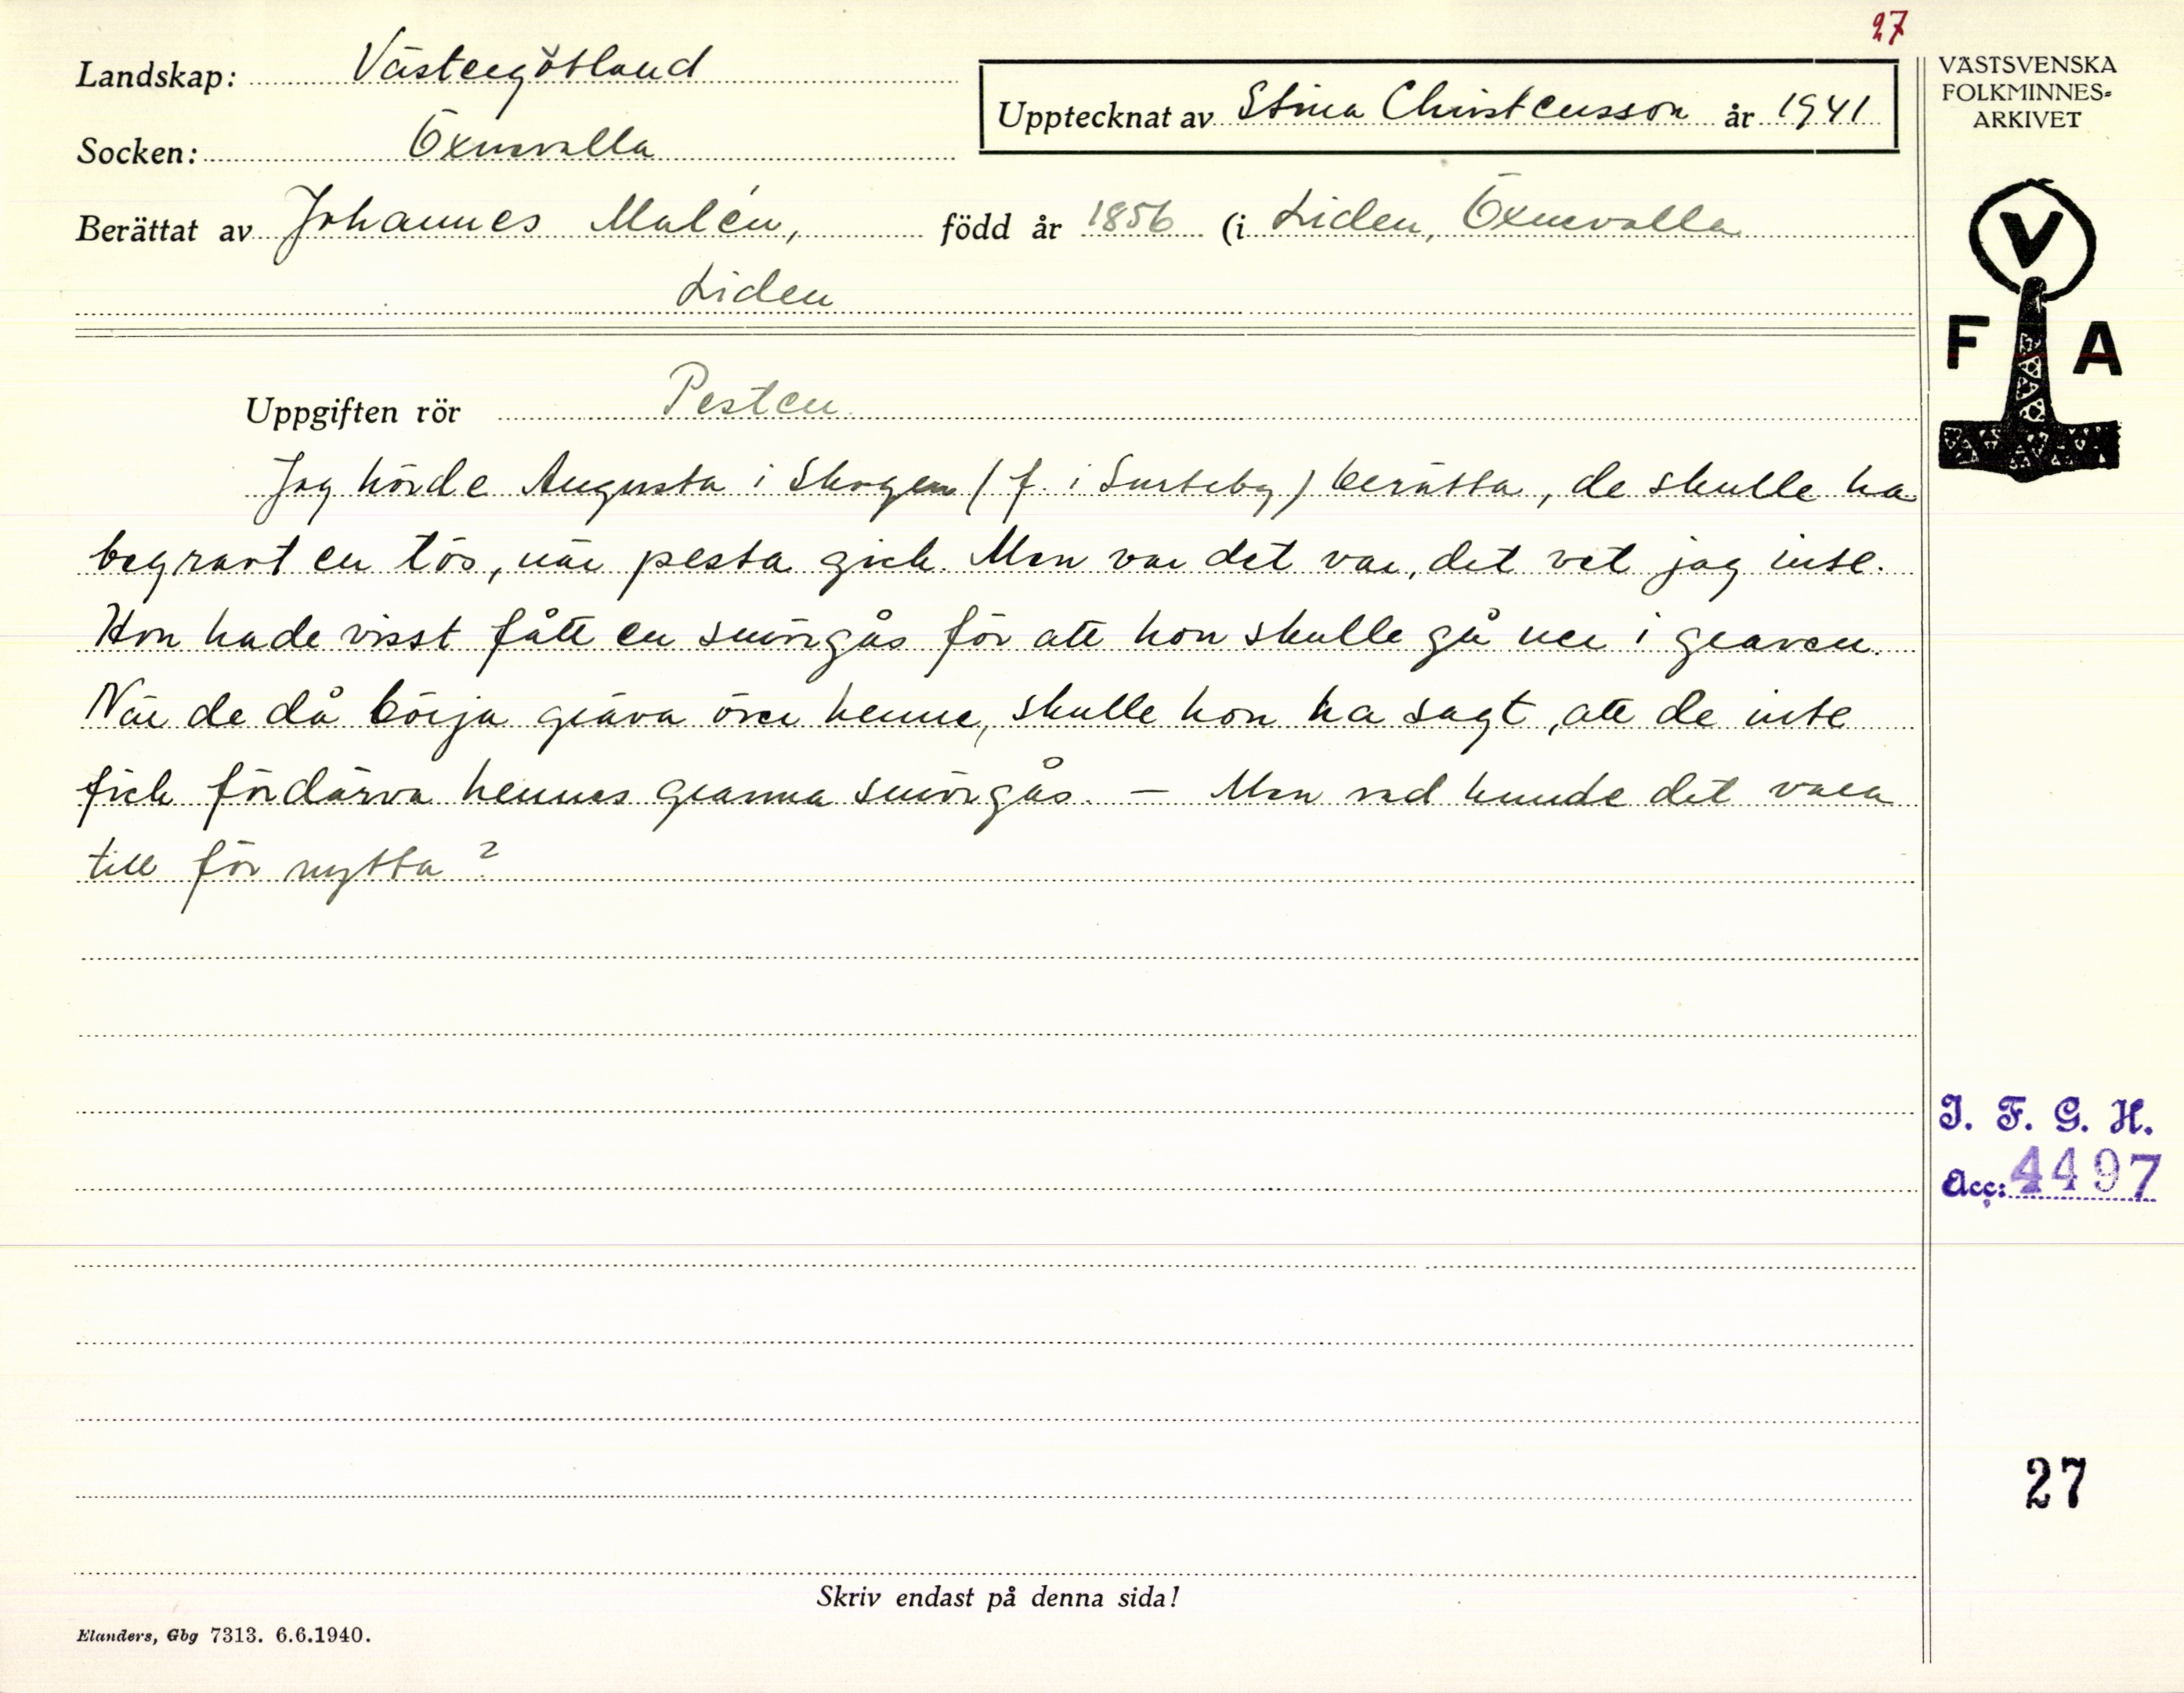 27
Landskap: Västergötland
Socken: Öxnevalla
Upptecknat av Stina Christensson år 1941
VÄSTSVENSKA
FOLKMINNES=
ARKIVET
Berättat av Johannes Malén, född år 1856 (i Liden, Öxnevalla
Liden
V
F A
Uppgiften rör Pesten.
Jag hörde Augusta i Skogen (f. i Surteby) berätta, de skulle ha
begravt en tös, när pesta gick. Men var det var, det vet jag inte.
Hon hade visst fått en smörgås för att hon skulle gå ner i graven.
När de då börja gräva över henne, skulle hon ha sagt, att de inte
fick fördärva hennes granna smörgås. — Men vad kunde det vara
till för nytta?
I. F. G. H.
Acc: 4497
27
Skriv endast på denna sida!
Elanders, Gbg 7313. 6.6.1940.